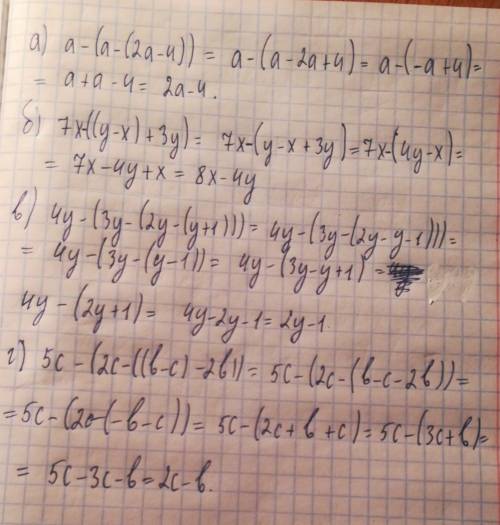 а) a-(a-(2a-4)) = a-(a-2a+4) = a-(-a+4)=
= a+a-4= 2a-4.
б) 7x-((y-x)+3y)= 7x-(y-x+3y)=7x-(4y-x)=
= 7x-4y+x = 8x-4y
в) 4y-(3y-(2y-(y+1)))= 4y-(3y-(2y-y-1)))=
= 4y-(3y-(y-1))= 4y-(3y-y+1) =
4y-(2y+1)= 4y-2y-1=2y-1.
г) 5c-(2c-((b-c)-2b))= 5c-(2c-(b-c-2b))=
=5c-(2c-(-b-c))= 5c-(2c+b+c)=5c-(3c+b)=
= 5c-3c-b=2c-b.